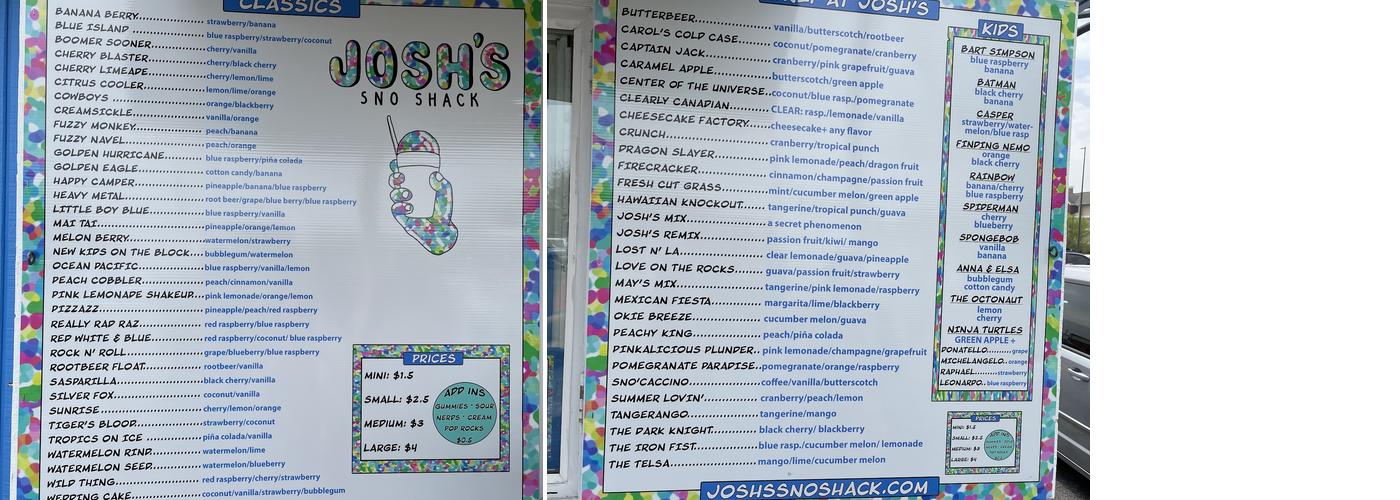 CLASSICS
BANANA BERRY..........strawberry/banana
BLUE ISLAND..........blue raspberry/strawberry/coconut
BOOMER SOONER..........cherry/vanilla
CHERRY BLASTER..........cherry/black cherry
CHERRY LIMEADE..........cherry/lemon/lime
CITRUS COOLER..........lemon/lime/orange
COWBOYS..........orange/blackberry
CREAMSICKLE..........vanilla/orange
FUZZY MONKEY..........peach/banana
FUZZY NAVEL..........peach/orange
GOLDEN HURRICANE..........blue raspberry/piña colada
GOLDEN EAGLE..........cotton candy/banana
HAPPY CAMPER..........pineapple/banana/blue raspberry
HEAVY METAL..........root beer/grape/blue berry/blue raspberry
LITTLE BOY BLUE..........blue raspberry/vanilla
MAI TAI..........pineapple/orange/lemon
MELON BERRY..........watermelon/strawberry
NEW KIDS ON THE BLOCK...bubblegum/watermelon
OCEAN PACIFIC..........blue raspberry/vanilla/lemon
PEACH COBBLER..........peach/cinnamon/vanilla
PINK LEMONADE SHAKEUP...pink lemonade/orange/lemon
PIZZAZZ..........pineapple/peach/red raspberry
REALLY RAD RAZ..........red raspberry/blue raspberry
RED WHITE & BLUE..........red raspberry/coconut/ blue raspberry
ROCK N' ROLL..........grape/blueberry/blue raspberry
ROOTBEER FLOAT..........rootbeer/vanilla
SASPARILLA..........black cherry/vanilla
SILVER FOX..........coconut/vanilla
SUNRISE..........cherry/lemon/orange
TIGER'S BLOOD..........strawberry/coconut
TROPICS ON ICE..........piña colada/vanilla
WATERMELON RIND..........watermelon/lime
WATERMELON SEED..........watermelon/blueberry
WILD THING..........red raspberry/cherry/strawberry
WEDDING CAKE..........coconut/vanilla/strawberry/bubblegum
JOSH'S
SNO SHACK
PRICES
MINI: $1.5
SMALL: $2.5
MEDIUM: $3
LARGE: $4
ADD INS
GUMMIES * SOUR
NERDS * CREAM
POP ROCKS
$0.5
AT JOSH'S
BUTTERBEER..........vanilla/butterscotch/rootbeer
CAROL'S COLD CASE..........coconut/pomegranate/cranberry
CAPTAIN JACK..........cranberry/pink grapefruit/guava
CARAMEL APPLE..........butterscotch/green apple
CENTER OF THE UNIVERSE..coconut/blue rasp./pomegranate
CLEARLY CANADIAN..........CLEAR: rasp./lemonade/vanilla
CHEESECAKE FACTORY.....cheesecake+ any flavor
CRUNCH..........cranberry/tropical punch
DRAGON SLAYER..........pink lemonade/peach/dragon fruit
FIRECRACKER..........cinnamon/champagne/passion fruit
FRESH CUT GRASS..........mint/cucumber melon/green apple
HAWAIIAN KNOCKOUT.......tangerine/tropical punch/guava
JOSH'S MIX..........a secret phenomenon
JOSH'S REMIX..........passion fruit/kiwi/ mango
LOST N' LA..........clear lemonade/guava/pineapple
LOVE ON THE ROCKS........guava/passion fruit/strawberry
MAY'S MIX..........tangerine/pink lemonade/raspberry
MEXICAN FIESTA..........margarita/lime/blackberry
OKIE BREEZE..........cucumber melon/guava
PEACHY KING..........peach/piña colada
PINKALICIOUS PLUNDER..pink lemonade/champagne/grapefruit
POMEGRANATE PARADISE..pomegranate/orange/raspberry
SNO'CCINO..........coffee/vanilla/butterscotch
SUMMER LOVIN'..........cranberry/peach/lemon
TANGERANGO..........tangerine/mango
THE DARK KNIGHT..........black cherry/ blackberry
THE IRON FIST..........blue rasp./cucumber melon/ lemonade
THE TELSA..........mango/lime/cucumber melon
KIDS
BART SIMPSON
blue raspberry
banana
BATMAN
black cherry
banana
CASPER
strawberry/water-
melon/blue rasp
FINDING NEMO
orange
black cherry
RAINBOW
banana/cherry
blue raspberry
SPIDERMAN
cherry
blueberry
SPONGEBOB
vanilla
banana
ANNA & ELSA
bubblegum
cotton candy
THE OCTONAUT
lemon
cherry
NINJA TURTLES
GREEN APPLE +
DONATELLO..........grape
MICHELANGELO..orange
RAPHAEL........strawberry
LEONARDO..blue raspberry
PRICES
MINI: $1.5
SMALL: $2.5
MEDIUM: $3
LARGE: $4
ADD INS
GUMMIES * SOUR
NERDS * CREAM
POP ROCKS
$0.5
JOSHSSNOSHACK.COM